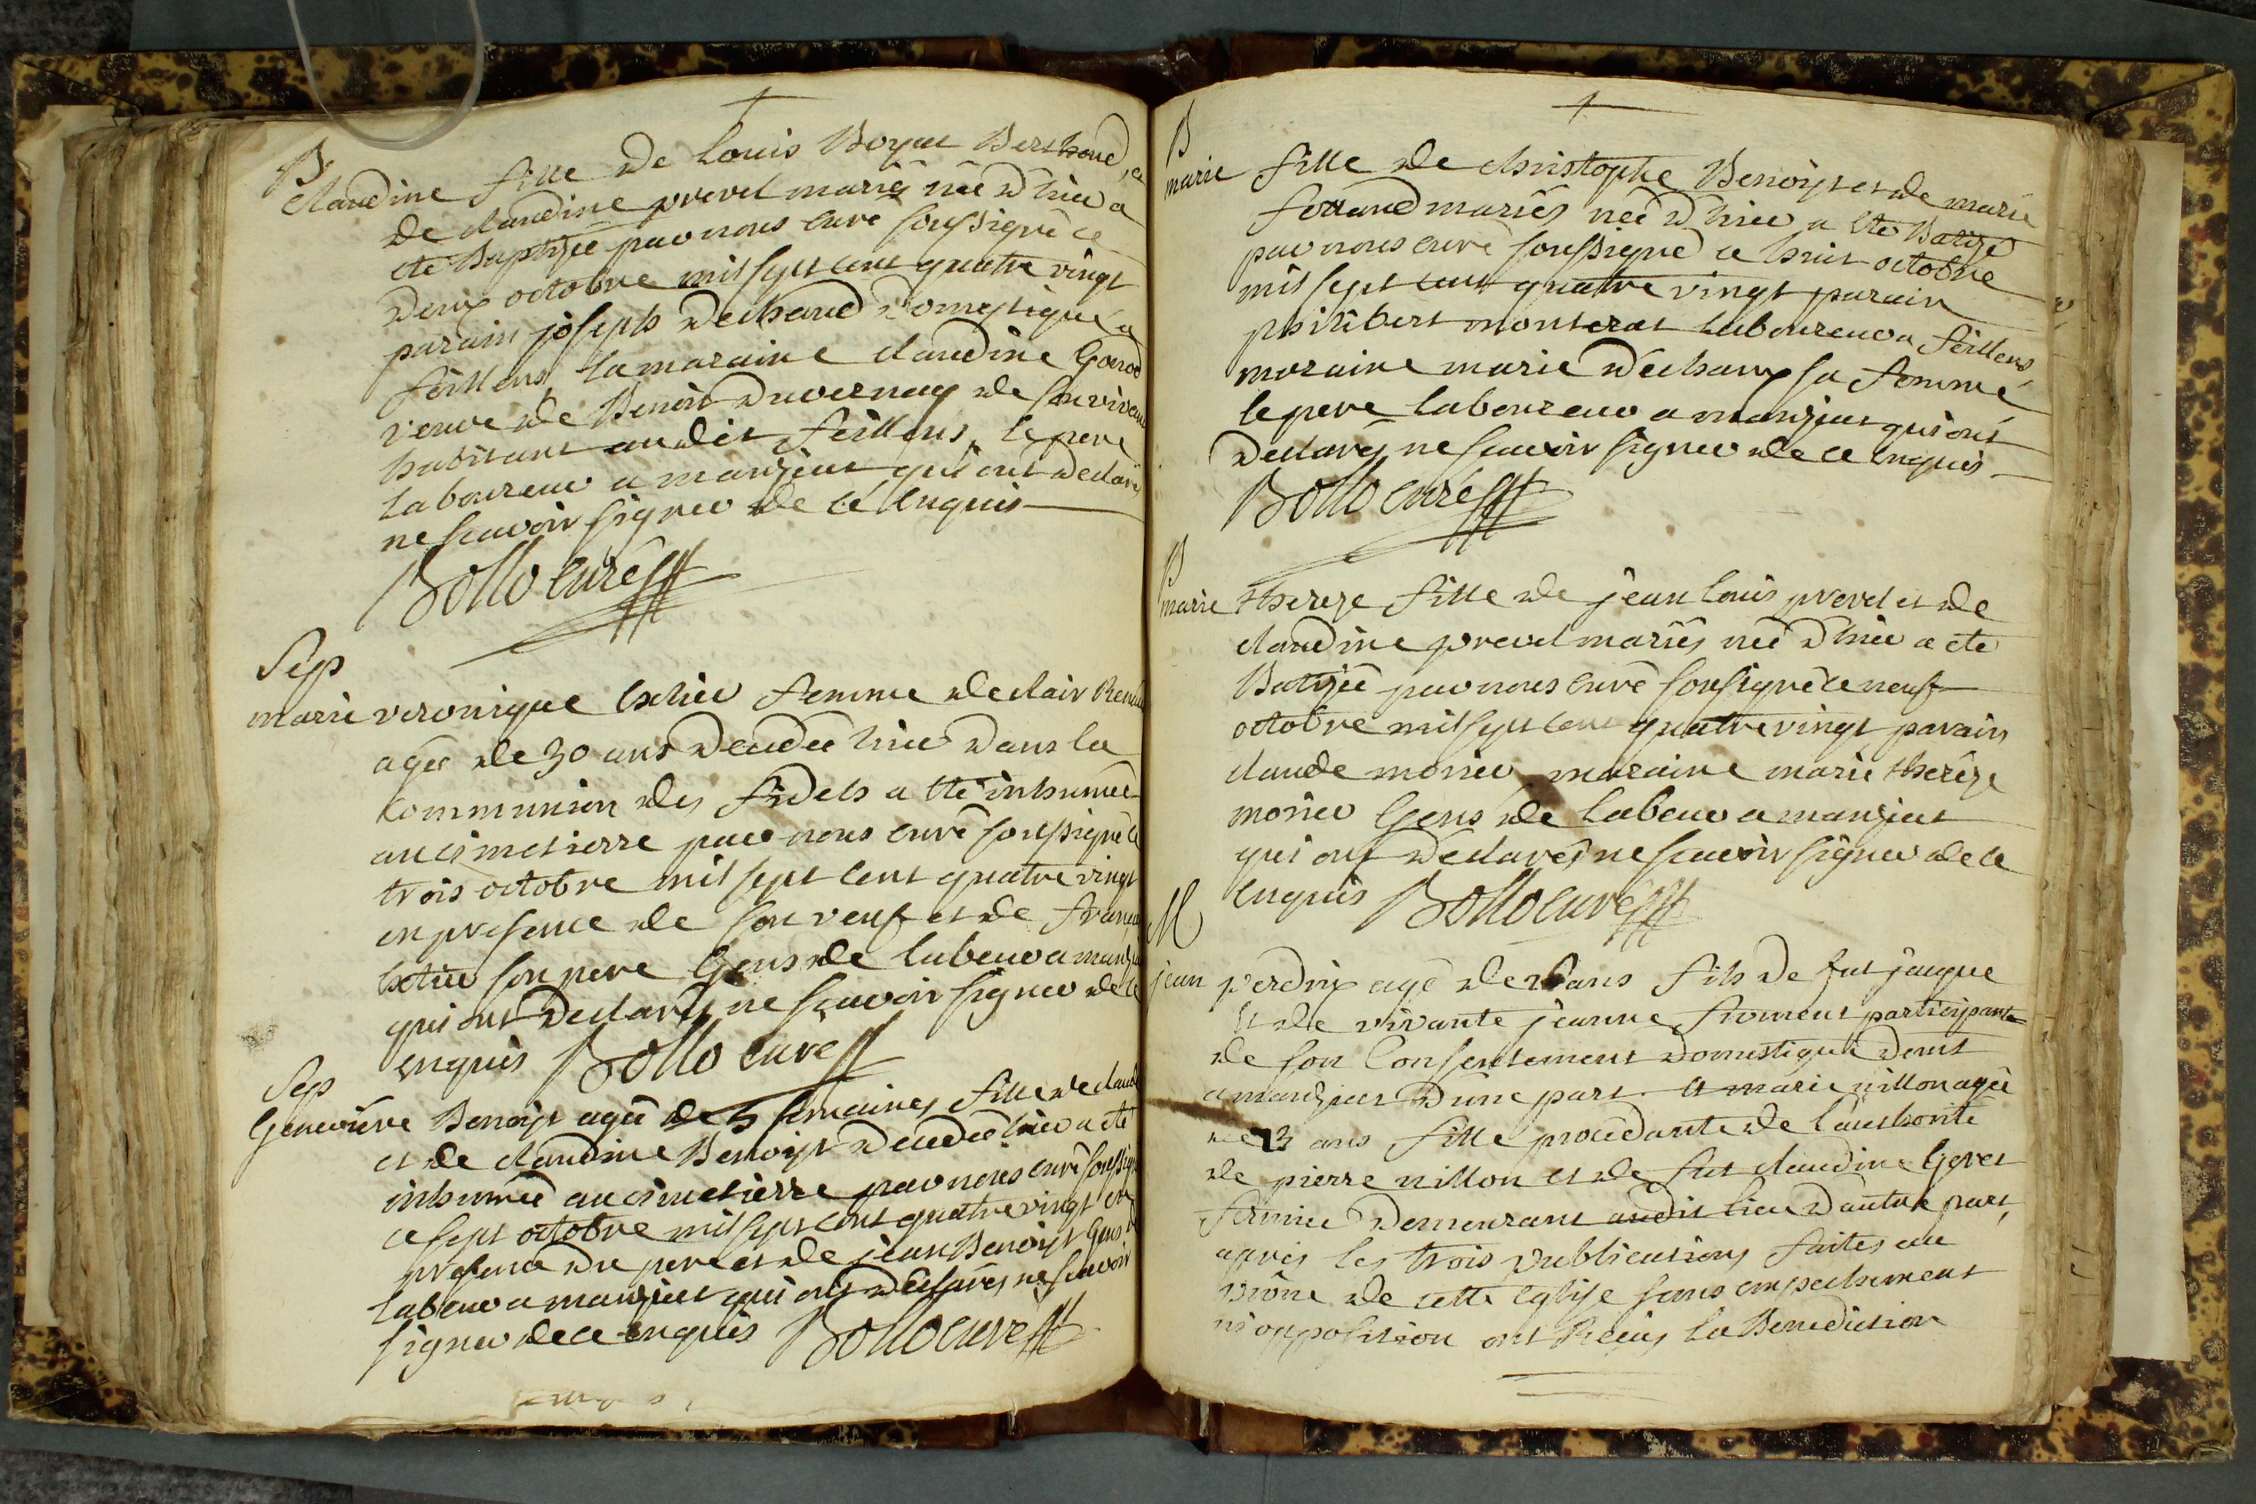 B
Claudine fille de Louis Boyat Berthoud, et
de claudine prevel mariés née d'hier a
eté Baptisée par nous curé soussigné ce
deux octobre mil sept cent quatre vingt
parain joseph dechaud domestique a
feillens, la maraine claudine Gorrod
veuve de Benoit duvernay de son vivant
habitant audit feillens, le pere
laboureur a manziat qui ont declarés
ne scavoir signer de ce enquis
Bollo curé
Sep
marie veronique femme de clair
agée de 30 ans decedée hier dans la
communion des fidels a eté inhumée
au cimetierre par nous curé soussigné ce
trois octobre mil sept cent quatre vingt
en presence de son veuf et de françois
son pere Gens de labeur a manziat
qui ont declarés ne scavoir signer de ce
enquis Bollo curé
Sep
Genevieve Benoist agée de 5 semaines fille de claude
et de claudine Benoist decedée hier a eté
inhumée au cimetierre par nous curé soussigné
ce sept octobre mil sept cent quatre vingt en
presence du pere et de jean Benoist Gens de
labeur a manziat qui ont declarés ne scavoir
signer de ce enquis Bollo curé
B
marie fille de christophe Benoist et de marie
ferrand mariés née d'hier a eté Batisé
par nous curé soussigné ce huit octobre
mil sept cent quatre vingt parain
philibert monterat laboureur a feillens,
maraine marie dechaux sa femme
le pere laboureur a manziat qui ont
declarés ne scavoir signer de ce enquis
Bollo curé
B
marie thereze fille de jean louis prevel et de
claudine prevel mariés née d'hier a eté
Batisée par nous curé soussigné ce neuf
octobre mil sept cent quatre vingt parain
claude monier maraine marie thereze
monier Gens de labeur a manziat
qui ont declarés ne scavoir signer de ce
enquis Bollo curé
M
jean perdrix agé de ans fils de fut jacque
et de vivante jeanne froment participante
de son consentement domestique
a manziat d'une part. et marie nillon agée
de 23 ans fille procedante de l'authorité
de pierre nillon et de fut claudine Geret
fermier demeurant audit lieu d'autre part,
après les trois publications faites au
prône de cette Eglise sans empechement
ni opposition ont Reçus la Benediction